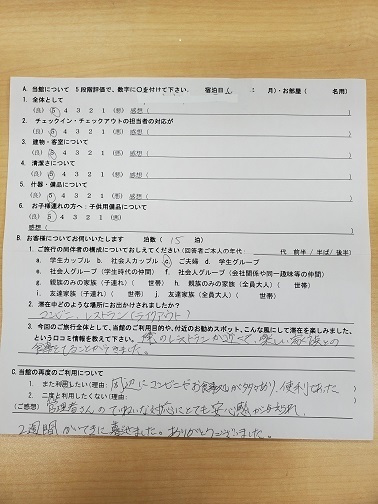 A. 当館について 5段階評価で、数字に○を付けて下さい。 宿泊日 : 月)・お部屋( 名用)
1. 全体として
(良) 5 4 3 2 1 (悪) 感想( )
2. チェックイン・チェックアウトの担当者の対応が
(良) 5 4 3 2 1 (悪) 感想( )
3. 建物・客室について
(良) 5 4 3 2 1 (悪) 感想( )
4. 清潔さについて
(良) 5 4 3 2 1 (悪) 感想( )
5. 什器・備品について
(良) 5 4 3 2 1 (悪) 感想( )
6. お子様連れの方へ：子供用備品について
(良) 5 4 3 2 1 (悪)
感想( )
B. お客様についてお伺いいたします 泊数( 15 泊)
1. ご旅行の同伴者の構成についておしえてください(回答者ご本人の年代: 代 前半 / 半ば / 後半)
a. 学生カップル b. 社会人カップル c. ご夫婦 d. 学生グループ
e. 社会人グループ(学生時代の仲間) f. 社会人グループ(会社関係や同一趣味等の仲間)
g. 親族のみの家族(子連れ)( 世帯) h. 親族のみの家族(全員大人)( 世帯)
i. 友達家族(子連れ)( 世帯) j. 友達家族(全員大人)( 世帯)
2. 滞在中どのような場所にお出かけされましたか?
コンビニ、レストラン(テイクアウト)
3. 今回のご旅行全体として、当館のご利用目的や、付近のお勧めスポット、こんな風にして滞在を楽しみました、
という口コミ情報を教えて下さい。 のレストランが近くて、楽しい家族との
食事をすることができました。
C. 当館の再度のご利用について
1. また利用したい(理由: 周辺にコンビニやお食事処が多々あり、便利であった )
2. 二度と利用したくない(理由:
(ご感想) 管理者さんのていねいな対応にとても安心感が与えられ、
2週間かいてきに過せました。ありがとうございました。